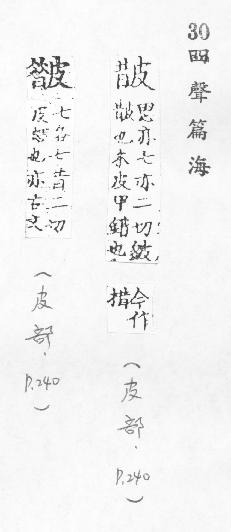 30 四聲篇海
皵 思亦七亦二切皴
皵也亦皮甲錯也
今作
措
（皮部．P.240）
七各七昔二切
皮皴也亦古文
（皮部．P.240）